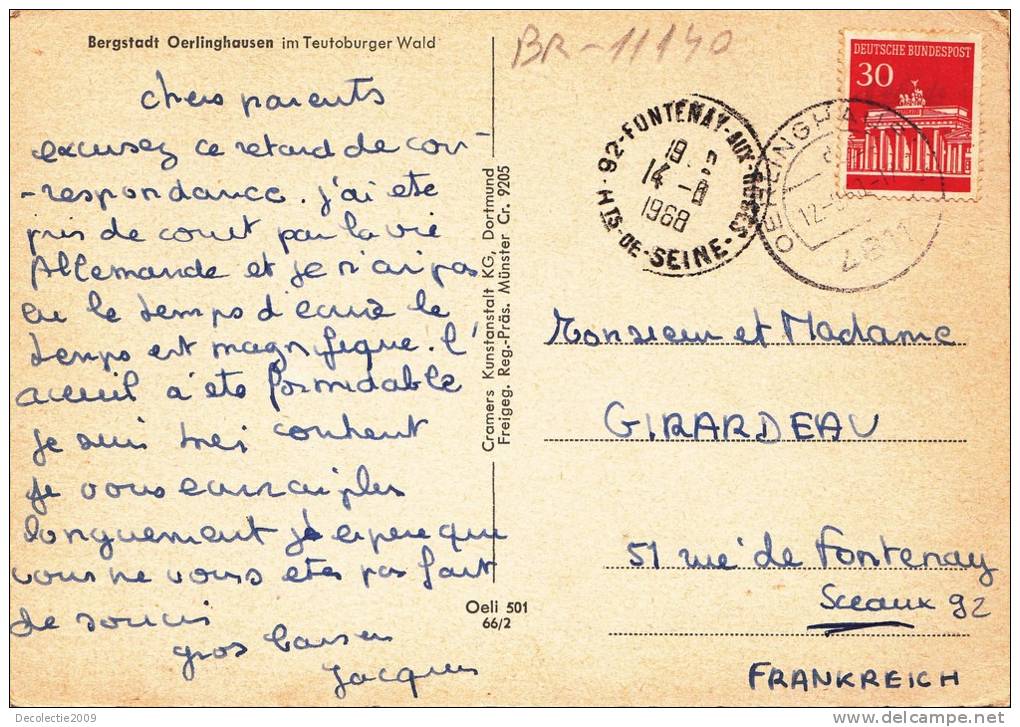 Bergstadt Oerlinghausen im Teutoburger Wald
BR-11140
DEUTSCHE BUNDESPOST
30
chers parents
excusez ce retard de cor-
-respondance. j'ai ete
pris de court par la vie
Allemande et je n'ai pas
eu le temps d'ecrire le
temps est magnifique. l'
acceuil a été formidable
je suis tres content
je vous ecrirai plus
longuement j'espere que
vous ne vous etes pas fait
de soucis
gros baisers
Jacques
92-FONTENAY-AUX-ROSES
HTS-DE-SEINE
14-8
1968
OERLINGHAUSEN
4811
Cramers Kunstanstalt KG, Dortmund
Freigeg. Reg.-Präs. Münster Cr. 9205
Oeli 501
66/2
Monsieur et Madame
GIRARDEAU
51 rue de Fontenay
Sceaux 92
FRANKREICH
Decolectie2009
www.delcampe.net